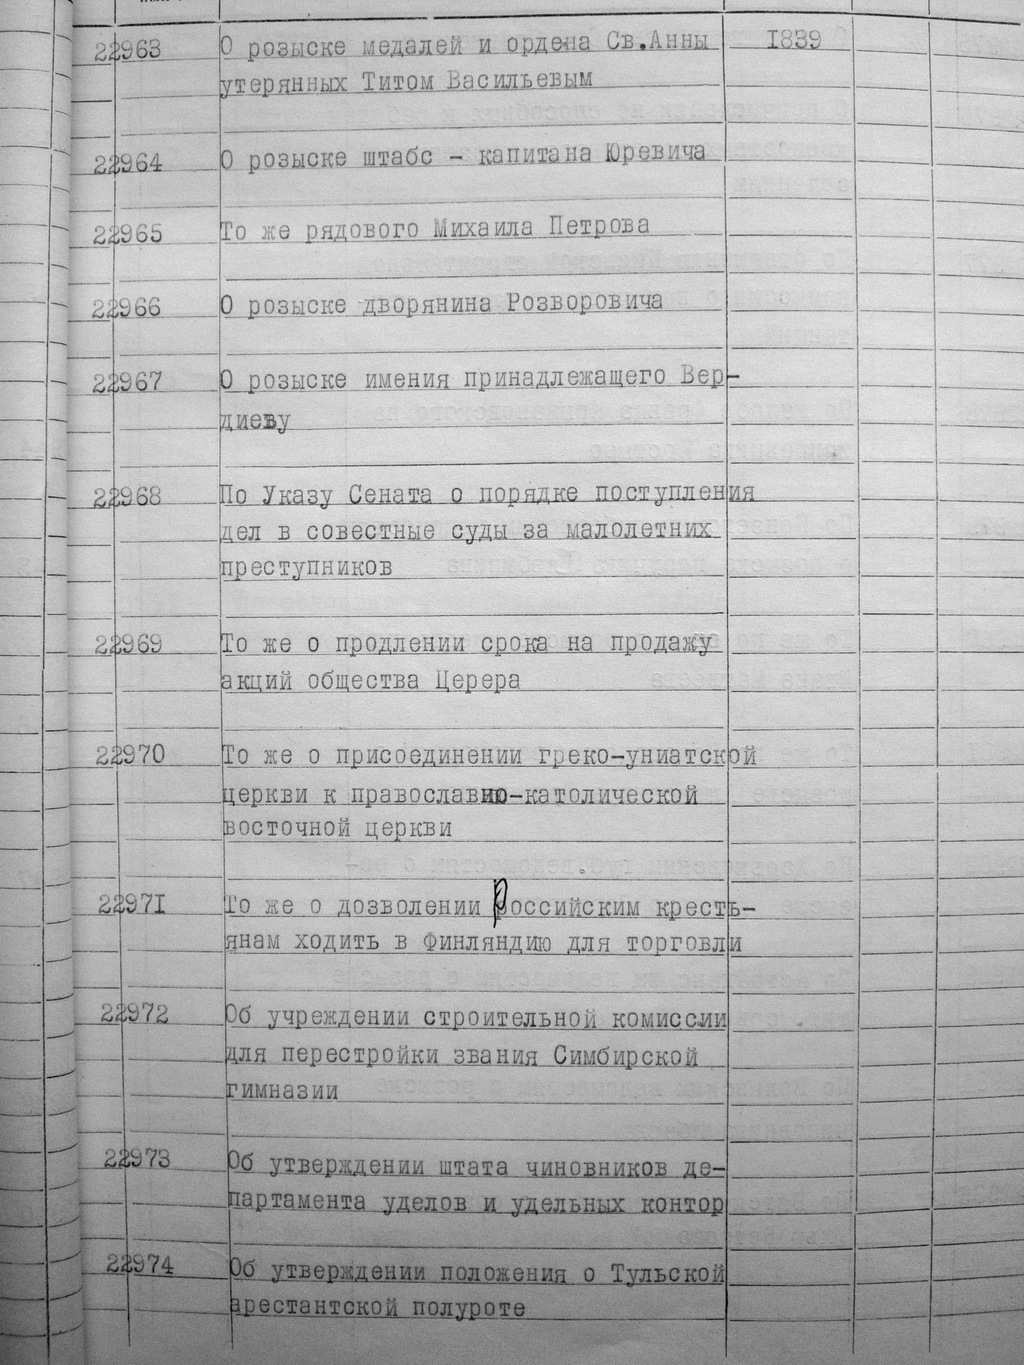 22963 О розыске медалей и ордена Св.Анны 1839
утерянных Титом Васильевым
22964 О розыске штабс - капитана Юревича
22965 То же рядового Михаила Петрова
22966 О розыске дворянина Розворовича
22967 О розыске имения принадлежащего Вер-
диеву
22968 По Указу Сената о порядке поступления
дел в совестные суды за малолетних
преступников
22969 То же о продлении срока на продажу
акций общества Церера
22970 То же о присоединении греко-униатской
церкви к православно-католической
восточной церкви
22971 То же о дозволении Российским кресть-
янам ходить в Финляндию для торговли
22972 Об учреждении строительной комиссии
для перестройки звания Симбирской
гимназии
22973 Об утверждении штата чиновников де-
партамента уделов и удельных контор
22974 Об утверждении положения о Тульской
арестантской полуроте